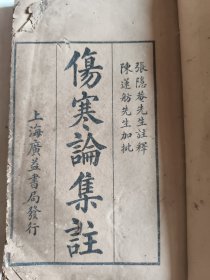 張隐菴先生註釋
陳蓮舫先生加批
傷寒論集註
上海廣益書局發行